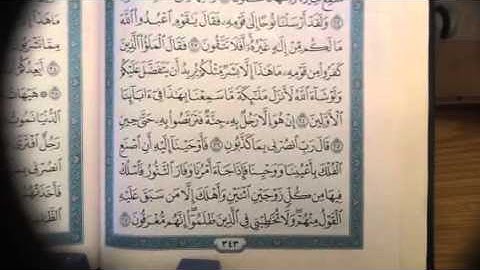 ٢٢ وَلَقَدْ أَرْسَلْنَا نُوحًا إِلَىٰ قَوْمِهِۦ فَقَالَ يَٰقَوْمِ ٱعْبُدُوا۟ ٱللَّهَ
مَا لَكُم مِّنْ إِلَٰهٍ غَيْرُهُۥٓ أَفَلَا تَتَّقُونَ ٢٣ فَقَالَ ٱلْمَلَؤُا۟ ٱلَّذِينَ
كَفَرُوا۟ مِن قَوْمِهِۦ مَا هَٰذَآ إِلَّا بَشَرٌ مِّثْلُكُمْ يُرِيدُ أَن يَتَفَضَّلَ عَلَيْكُمْ
وَلَوْ شَآءَ ٱللَّهُ لَأَنزَلَ مَلَٰٓئِكَةً مَّا سَمِعْنَا بِهَٰذَا فِىٓ ءَابَآئِنَا
ٱلْأَوَّلِينَ ٢٤ إِنْ هُوَ إِلَّا رَجُلٌۢ بِهِۦ جِنَّةٌ فَتَرَبَّصُوا۟ بِهِۦ حَتَّىٰ حِينٍ
٢٥ قَالَ رَبِّ ٱنصُرْنِى بِمَا كَذَّبُونِ ٢٦ فَأَوْحَيْنَآ إِلَيْهِ أَنِ ٱصْنَعِ
ٱلْفُلْكَ بِأَعْيُنِنَا وَوَحْيِنَا فَإِذَا جَآءَ أَمْرُنَا وَفَارَ ٱلتَّنُّورُ فَٱسْلُكْ
فِيهَا مِن كُلٍّ زَوْجَيْنِ ٱثْنَيْنِ وَأَهْلَكَ إِلَّا مَن سَبَقَ عَلَيْهِ
ٱلْقَوْلُ مِنْهُمْ وَلَا تُخَٰطِبْنِى فِى ٱلَّذِينَ ظَلَمُوٓا۟ إِنَّهُم مُّغْرَقُونَ ٢٧
٣٤٣
مَا هَٰذَآ
مِمَّا تَشْرَبُونَ
أَيَعِدُكُمْ
هَيْهَاتَ
ٱلدُّنْيَا نَمُوتُ
رَجُلٌ ٱفْتَرَىٰ
ٱنصُرْنِى بِمَا
فَأَخَذَتْهُمُ